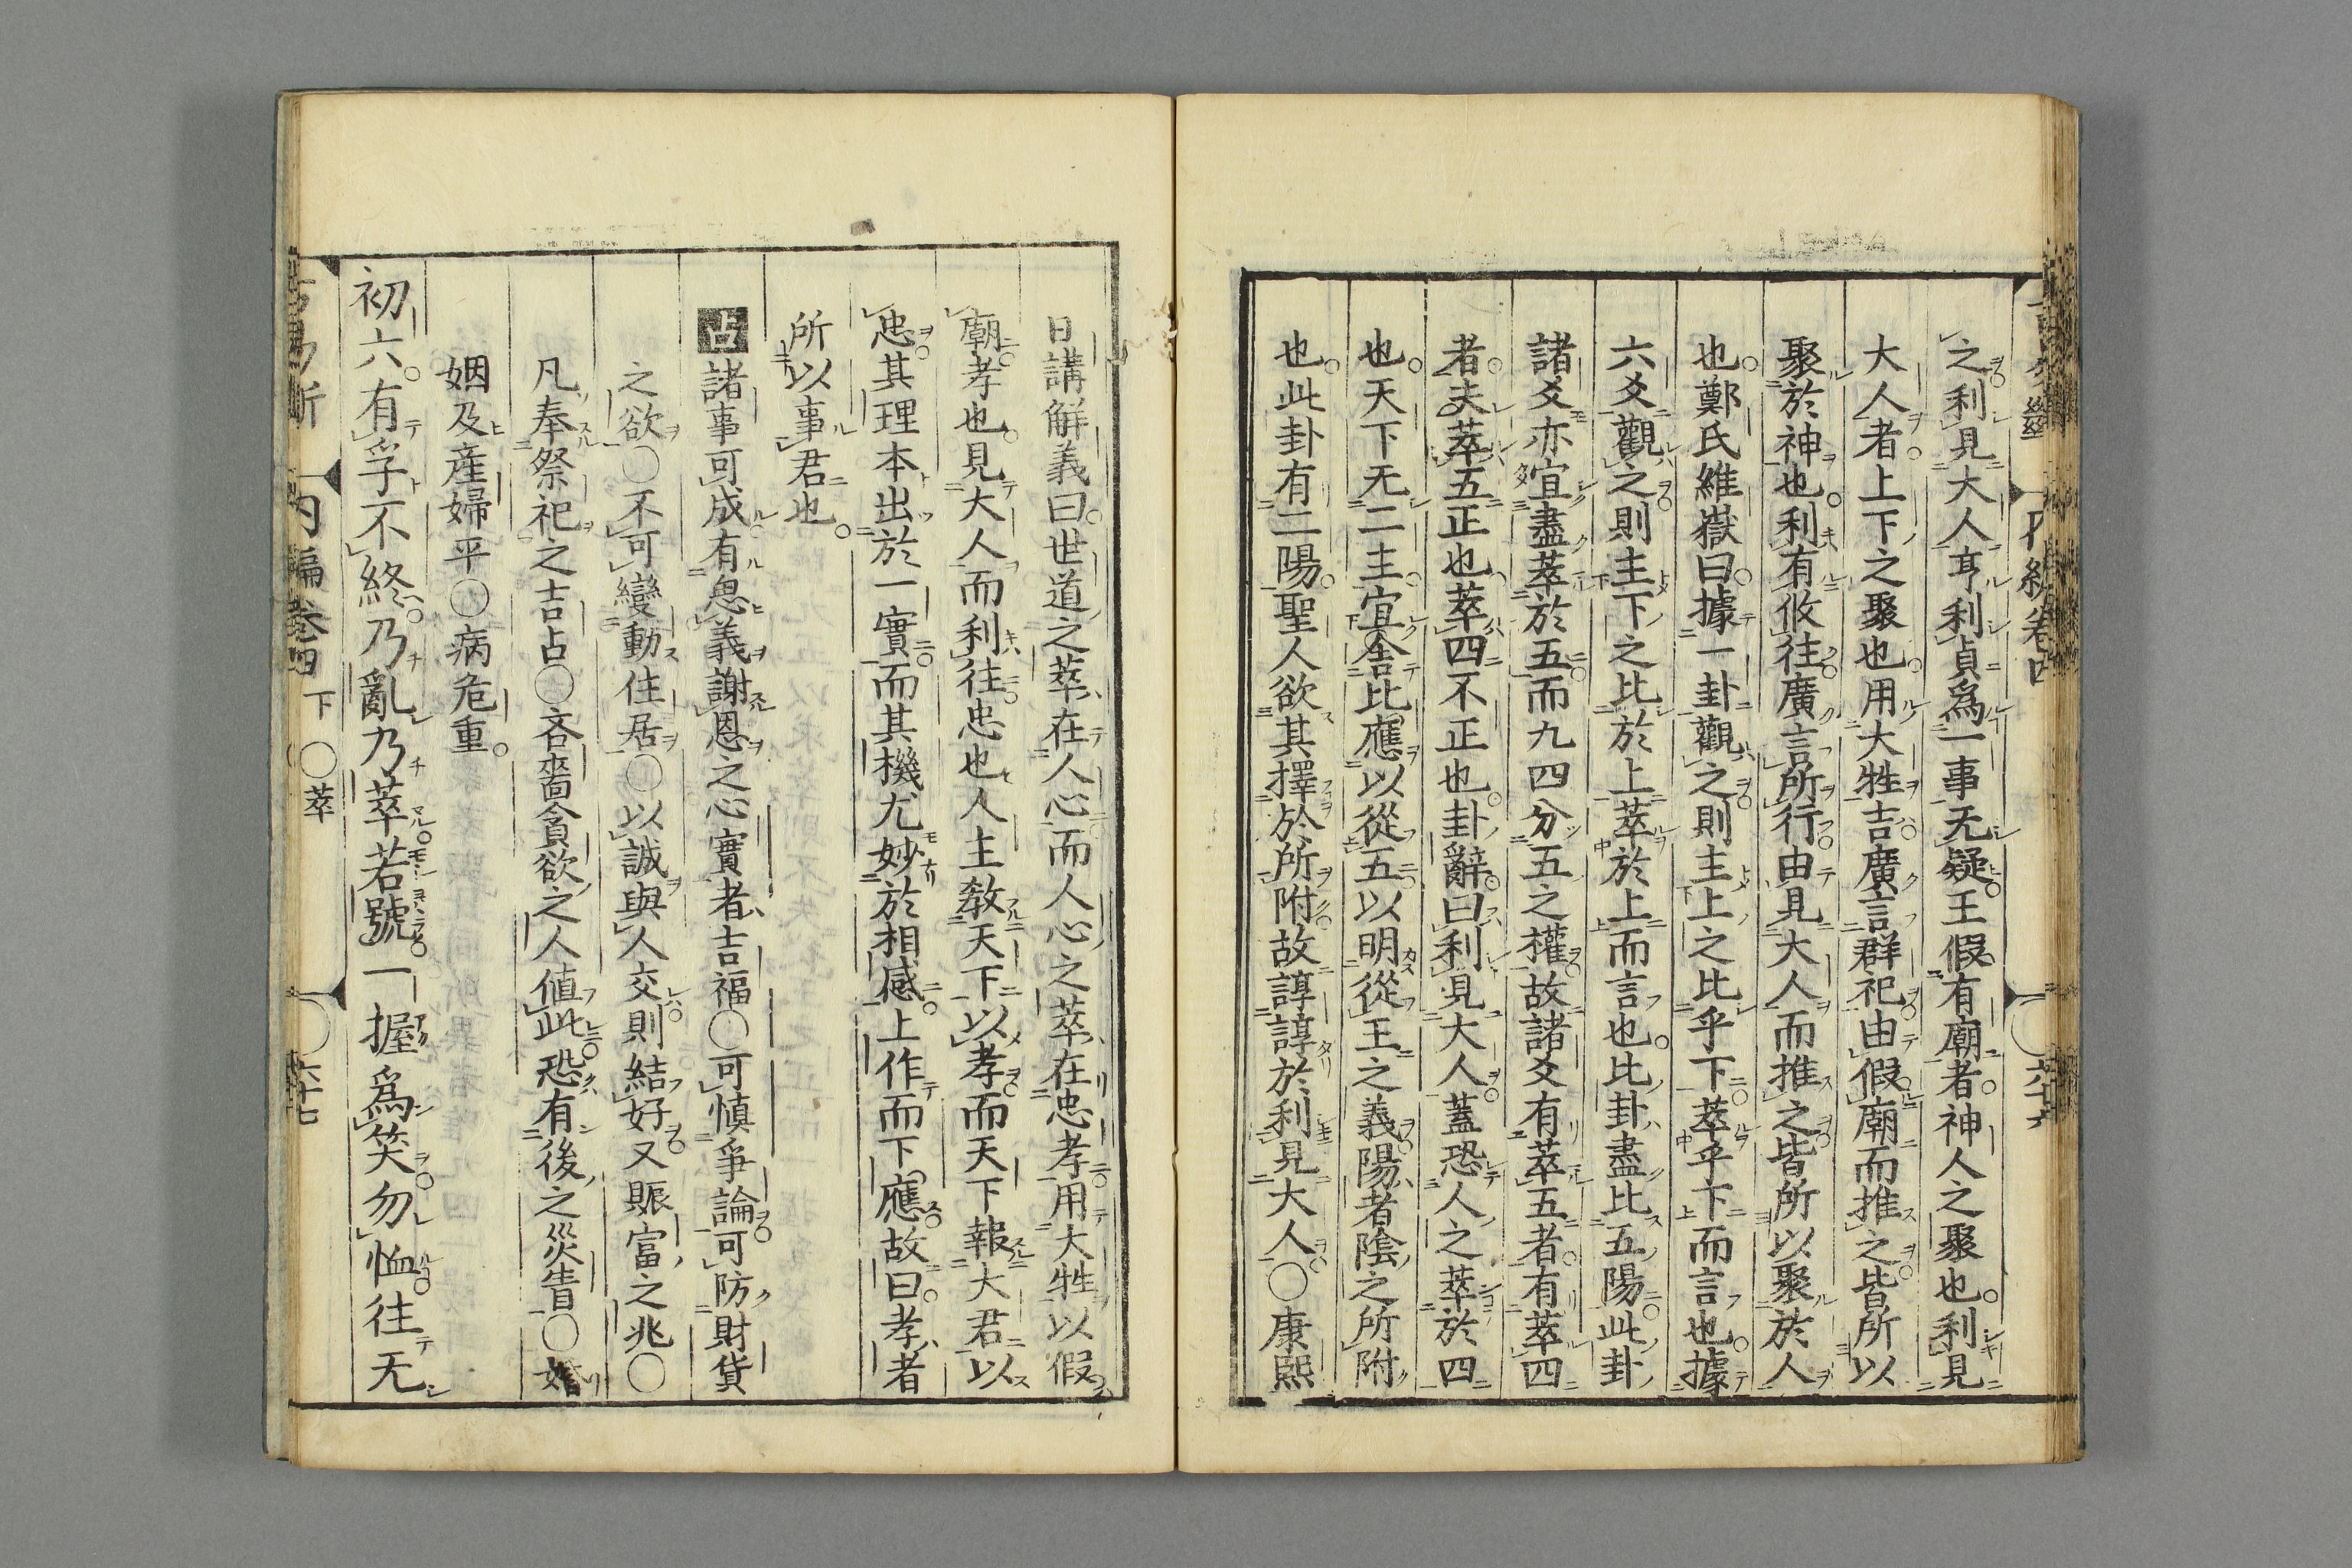 之利見大人亨利貞爲一事无疑王假有廟者神人之聚也利見
大人者上下之聚也用大牲吉廣言群祀由假廟而推之皆所以
聚於神也利有攸往廣言所行由見大人而推之皆所以聚於人
也鄭氏維嶽曰據一卦觀之則主上之比乎下萃乎下而言也據
六爻觀之則主下之比於上萃於上而言也比卦盡比五陽此卦
諸爻亦宜盡萃於五而九四分五之權故諸爻有萃五者有萃四
者夫萃五正也萃四不正也卦辭曰利見大人蓋恐人之萃於四
也天下无二主宜舍比應以從五以明從王之義陽者陰之所附
也此卦有二陽聖人欲其擇於所附故諄諄於利見大人〇康熙
日講解義曰世道之萃在人心而人心之萃在忠孝用大牲以假
廟孝也見大人而利往忠也人主敎天下以孝而天下報大君以
忠其理本出於一實而其機尤妙於相感上作而下應故曰孝者
所以事君也
占諸事可成有忽義謝恩之心實者吉福〇可愼爭論可防財貨
之欲〇不可變動住居〇以誠與人交則結好又賑富之兆〇
凡奉祭祀之吉占〇吝嗇貪欲之人値此恐有後之災眚〇婚
姻及産婦平〇病危重
初六有孚不終乃亂乃萃若號一握爲笑勿恤往无
内編卷四 下 〇萃 〇六十七